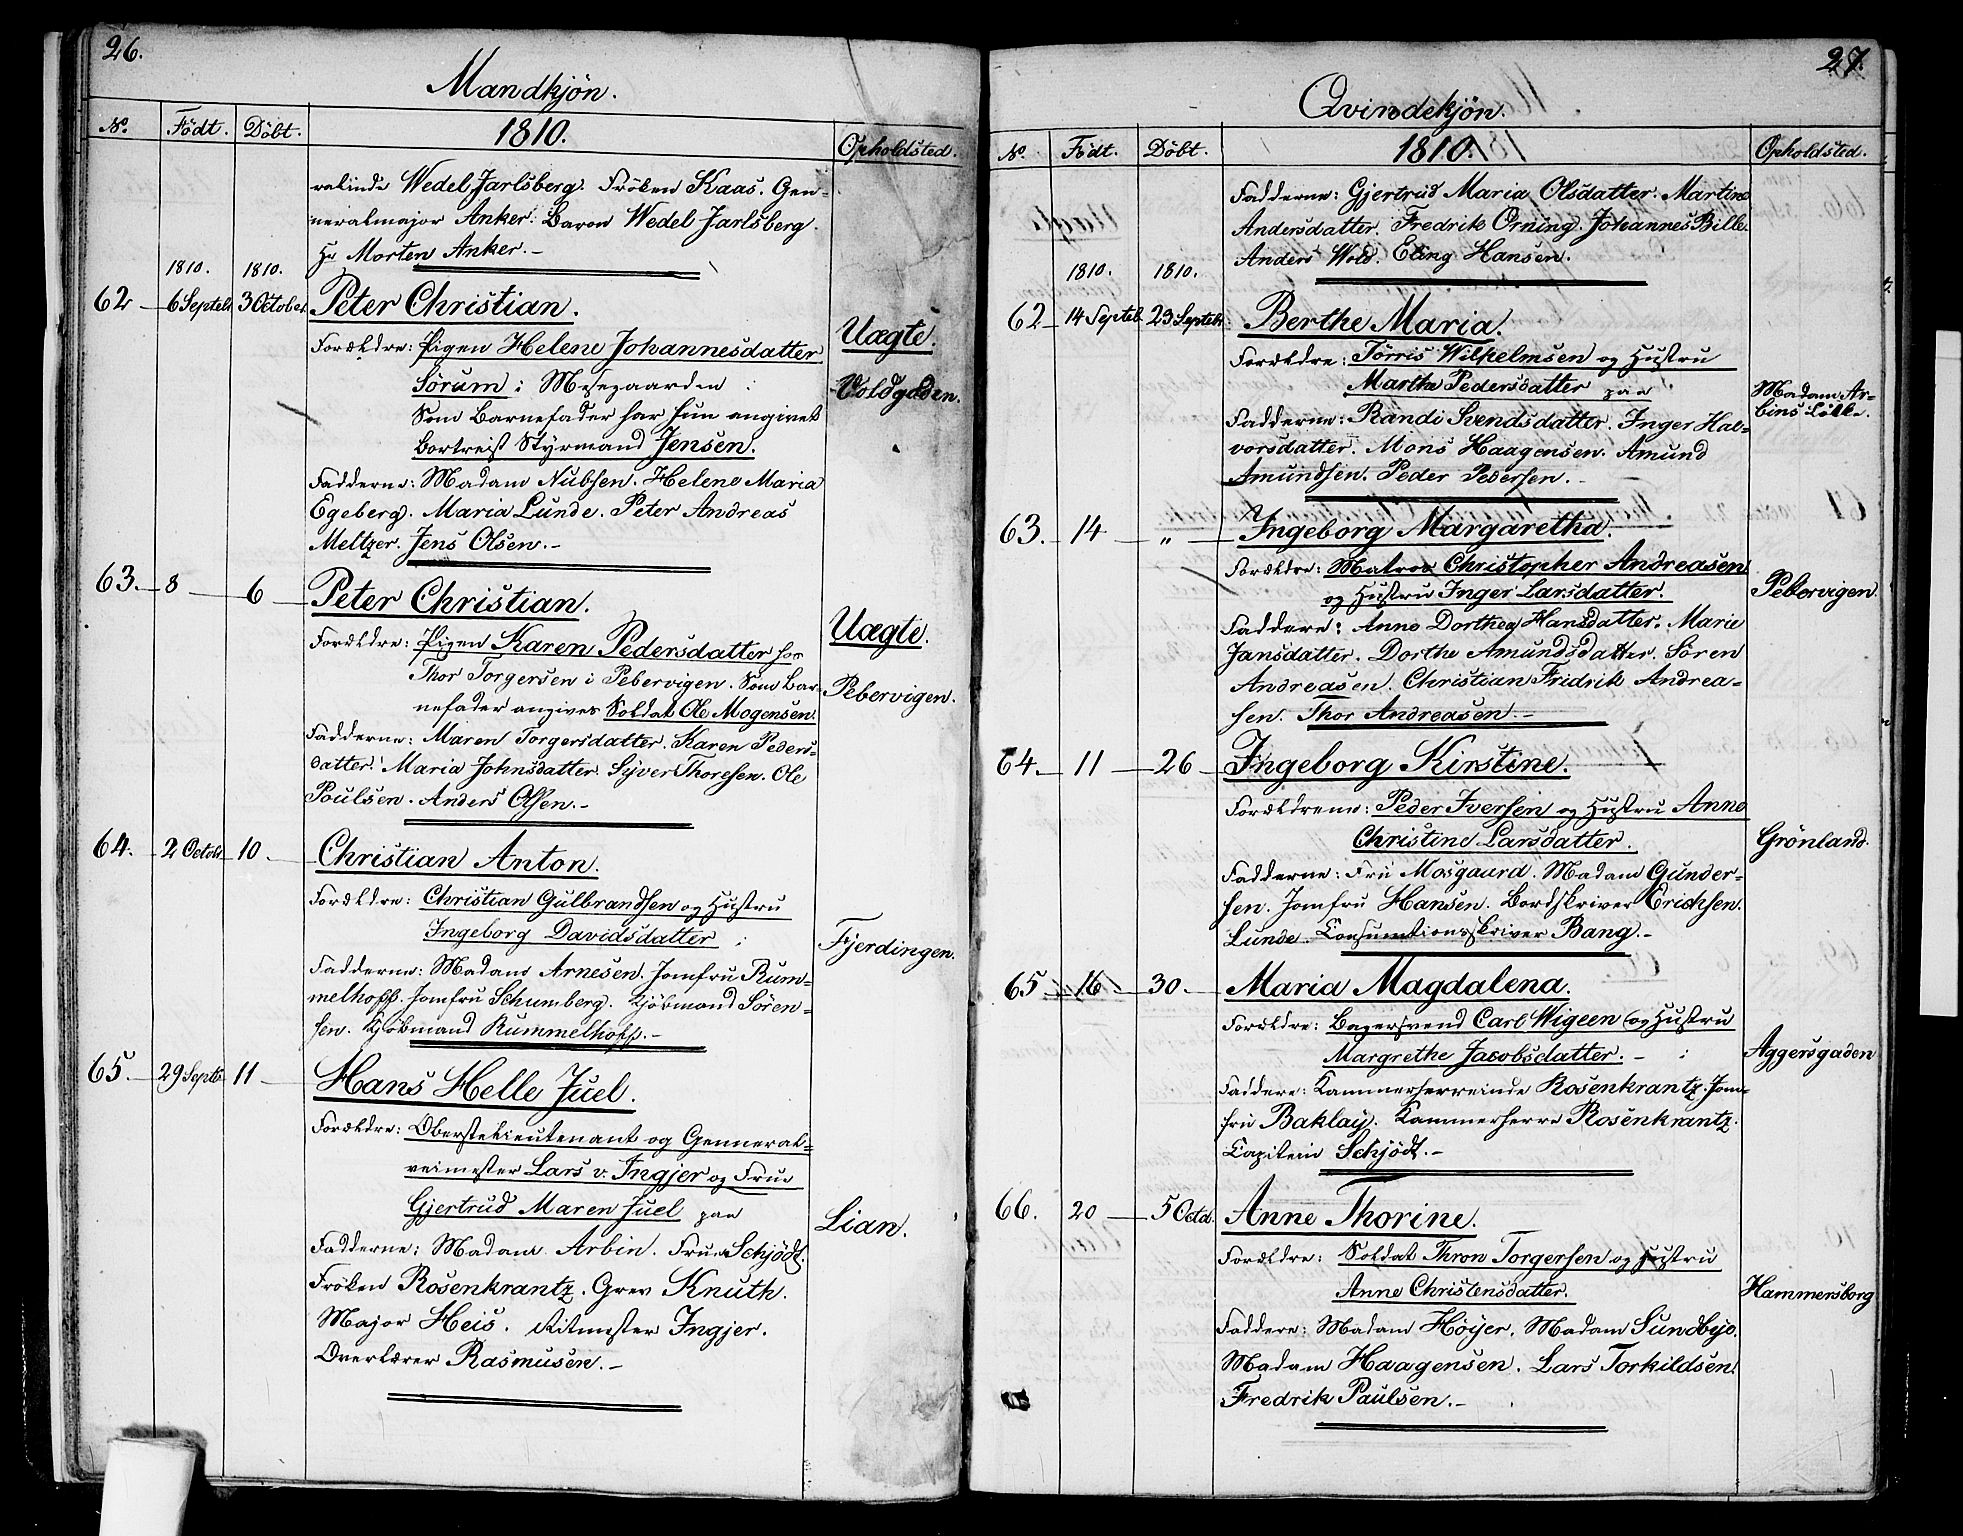 26.
Mandkjön.
No. Födt. Döbt. 1810. Opholdsted.
ralinde Wedel Jarlsberg. Fröken Kaas. Gen-
neralmajor Anker. Baron Wedel Jarlsberg.
Hr Morten Anker.-
1810. 1810.
62 6 Septebr 3 October Peter Christian.
Uægte.
Forældre: Pigen Helene Johannesdatter
Sörum i Mesegaarden i Voldgaden.
Som Barnefader har hun angivet
bortreist Styrmand Jensen.
Fadderne: Madam Nubsen. Helene Maria
Egeberg. Maria Lunde. Peter Andreas
Meltzer. Jens Olsen.-
63. 8 6 Peter Christian.
Uægte.
Forældre: Pigen Karen Pedersdatter hos
Thor Torgersen i Pebervigen. Som Bar- Pebervigen.
nefader angives Soldat Ole Mogensen.
Fadderne: Maren Torgersdatter. Karen Peders-
datter. Maria Johnsdatter. Syver Thoresen. Ole
Poulsen. Anders Olsen.-
64. 2 Octobr 10 Christian Anton.
Forældre: Christian Gulbrandsen og Hustru
Ingeborg Davidsdatter i Fjerdingen.
Fadderne: Madam Arnesen. Jomfru Rum-
melhoff. Jomfru Schumberg. Kjöbmand Sören-
sen. Kjöbmand Rummelhoff.-
65. 29 Septb. 11 Hans Helle Juel.
Forældre: Oberstelieutenant og Genneral-
veimester Lars v. Ingjer og Frue
Gjertrud Maren Juel paa Lian.
Fadderne: Madam Arbin. Frue Schjödt.
Fröken Rosenkrantz. Grev Knuth.
Major Heis. Ritmester Ingjer.
Overlærer Rasmusen.-
27.
Qvindekjön.
No. Födt. Döbt. 1810. Opholdsted.
Fadderne: Gjertrud Maria Olsdatter. Martine
Andersdatter. Fredrik Orning. Johannes Bille.
Anders Wold. Eling Hansen.
1810. 1810.
62 14 Septeb. 23 Septebr. Berthe Maria.
Forældre: Törris Wilhelmsen og Hustru
Marthe Pedersdatter paa Madam Ar-
bins Lökke.
Fadderne: Randi Svendsdatter. Inger Hal-
vorsdatter. Mons Haagensen. Amund
Amundsen. Peder Pedersen.-
63. 14 „ Ingeborg Margaretha.
Forældre: Matros Christopher Andreasen
og Hustru Inger Larsdatter. Pebervigen.
Faddere: Anne Dorthea Hansdatter. Marie
Jansdatter. Dorthe Amundsdatter. Sören
Andreasen. Christian Fridrik Andrea-
sen. Thor Andreasen.-
64. 11 26 Ingeborg Kirstine.
Forældrene: Peder Iversen og Hustru Anne
Christine Larsdatter. Grönland.
Fadderne: Fru Mosgaard. Madam Gunder-
sen. Jomfru Hansen. Bordskriver Erichsen.
Lunde. Consumtionsskriver Bang.-
65 16 30. Maria Magdalena.
Forældre: Bagersvend Carl Wigeen og Hustru
Margrethe Jacobsdatter. - i Aggersgaden
Faddere: Kammerherreinde Rosenkrantz. Jom-
fru Baklay. Kammerherre Rosenkrantz.
Capitein Schjödt.-
66. 20 5 Octd. Anne Thorine.
Forældre: Soldat Thron Torgersen og Hustru
Anne Christensdatter. Hammersborg
Faddere: Madam Höyer. Madam Sundbye.
Madam Haagensen. Lars Torkildsen.
Fredrik Paulsen.-